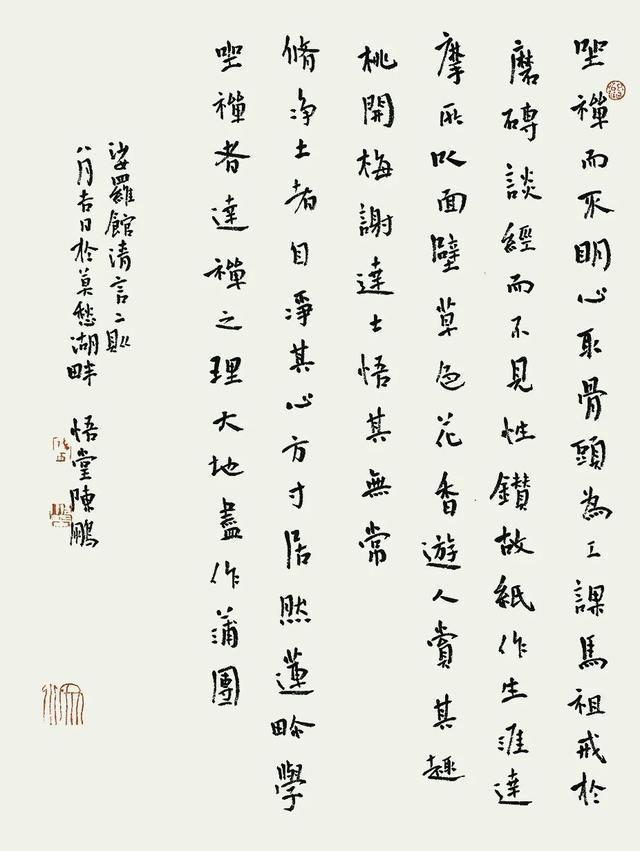 坐禪而不明心取骨頭為工課馬祖戒於
磨磚談經而不見性鑽故紙作生涯達
摩所以面壁草色花香遊人賞其趣
桃開梅謝達士悟其無常
脩淨土者自淨其心方寸居然蓮界學
坐禪者達禪之理大地盡作蒲團
娑羅館清言二則
八月吉日於莫愁湖畔 悟堂陳鵬